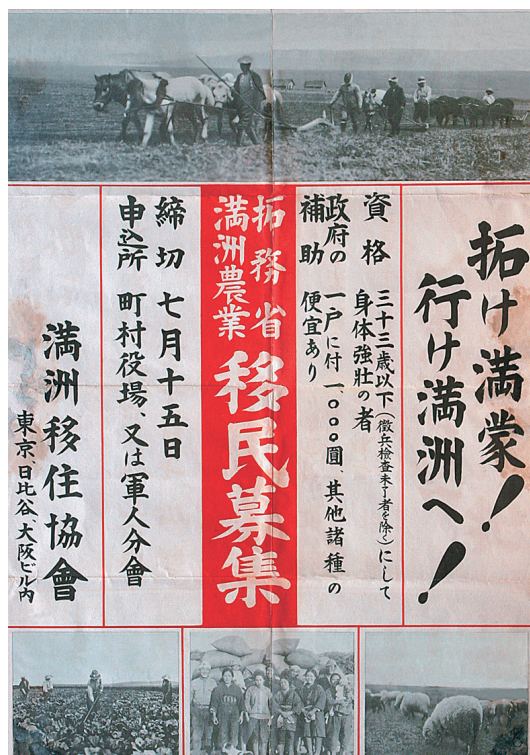 拓け満蒙!
行け満洲へ!
資格 三十三歳以下(徴兵検査未了者を除く)にして
身体強壮の者
政府の補助 一戸に付一、〇〇〇圓、其他諸種の
便宜あり
拓務省
満洲農業
移民募集
締切 七月十五日
申込所 町村役場、又は軍人分會
満洲移住協會
東京、日比谷、大阪ビル内